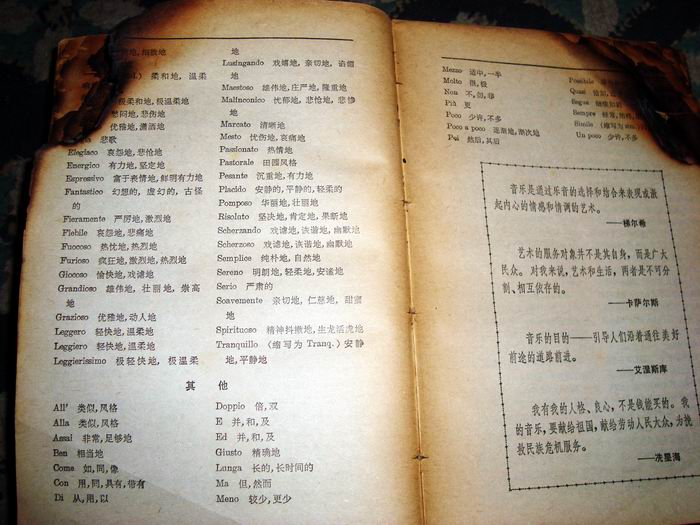 地,细致地
柔和地,温柔
极柔和地,极温柔地
愁闷地,悲伤地
优雅地,潇洒地
悲歌
Elegiaco 哀怨地,悲怆地
Energico 有力地,坚定地
Espressivo 富于表情地,鲜明有力地
Fantastico 幻想的,虚幻的,古怪
的
Fieramente 严厉地,激烈地
Flebile 哀怨地,悲痛地
Fuocoso 热忱地,热烈地
Furioso 疯狂地,激烈地,热烈地
Giocoso 愉快地,戏谑地
Grandioso 雄伟地,壮丽地,崇高
地
Grazioso 优雅地,动人地
Leggero 轻快地,温柔地
Leggiero 轻快地,温柔地
Leggierissimo 极轻快地,极温柔
地
Lusingando 戏嬉地,亲切地,谄媚
地
Maestoso 雄伟地,庄严地,隆重地
Malinconico 忧郁地,悲怆地,悲惨
地
Marcato 清晰地
Mesto 忧伤地,哀痛地
Passionato 热情地
Pastorale 田园风格
Pesante 沉重地,有力地
Placido 安静的,平静的,轻柔的
Pomposo 华丽地,壮丽地
Risoluto 坚决地,肯定地,果断地
Scherzando 戏谑地,诙谐地,幽默地
Scherzoso 戏谑地,诙谐地,幽默地
Semplice 纯朴地,自然地
Sereno 明朗地,轻柔地,安谧地
Serio 严肃的
Soavemente 亲切地,仁慈地,甜蜜
地
Spirituoso 精神抖擞地,生龙活虎地
Tranquillo (缩写为 Tranq.) 安静
地,平静地
其他
All' 类似,风格
Alla 类似,风格
Assai 非常,足够地
Ben 相当地
Come 如,同,像
Con 用,同,具有,带有
Di 从,用,以
Doppio 倍,双
E 并,和,及
Ed 并,和,及
Giusto 精确地
Lunga 长的,长时间的
Ma 但,然而
Meno 较少,更少
Mezzo 适中,一半
Molto 很,极
Non 不,勿,非
Più 更
Poco 少许,不多
Poco a poco 逐渐地,渐次地
Poi 然后,其后
Possibile
Quasi
Segue 继续如前
Sempre 经常,始终
Simile (缩写为 sim.)
Un poco 少许,不多
音乐是通过乐音的选择和结合来表现或激
起内心的情感和情调的艺术。
——梯尔希
艺术的服务对象并不是其自身,而是广大
民众。对我来说,艺术和生活,两者是不可分
割、相互依存的。
——卡萨尔斯
音乐的目的——引导人们沿着通往美好
前途的道路前进。
——艾涅斯库
我有我的人格、良心,不是钱能买的。我
的音乐,要献给祖国,献给劳动人民大众,为挽
救民族危机服务。
——冼星海